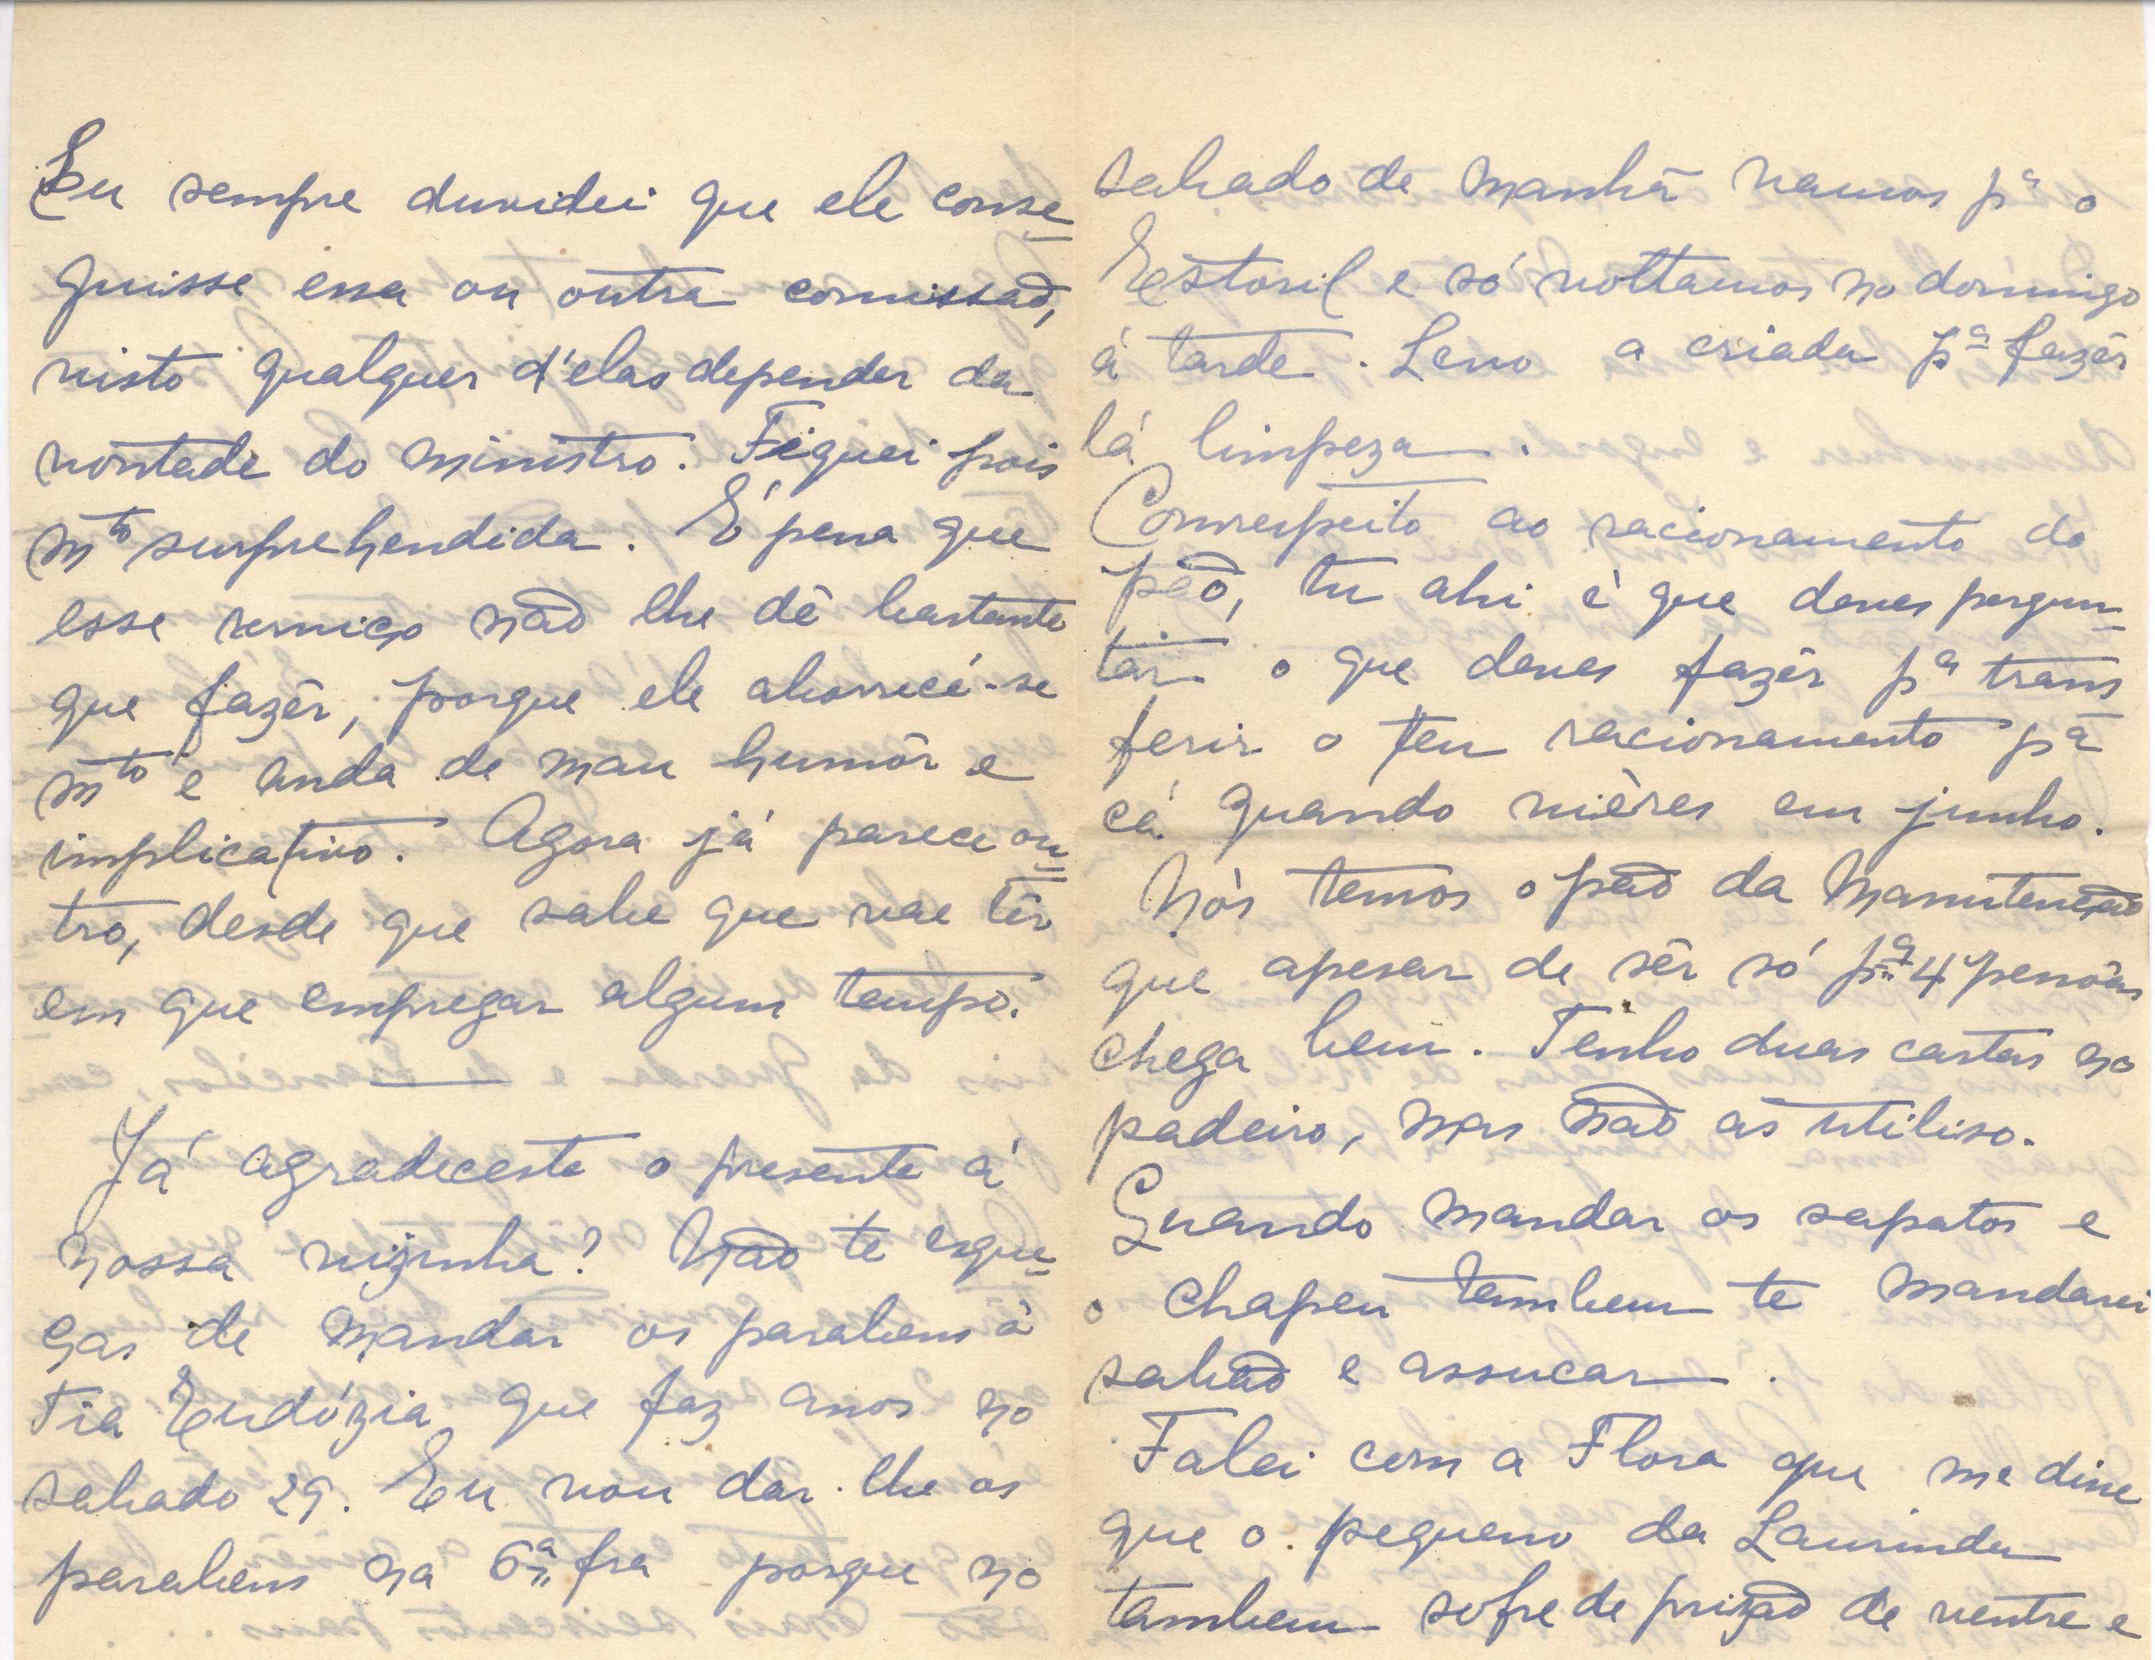 Eu sempre duvidei que ele conse=
guisse essa ou outra comissão,
visto qualquer d'elas depender da
vontade do ministro. Fiquei pois
mto surprehendida. É pena que
esse serviço não lhe dê bastante
que fazêr, porque ele aborrecé-se
mto e anda de mau humôr e
implicativo. Agora já parece ou=
tro, desde que sabe que vae têr
em que empregar algum tempo.
Já agradeceste o presente á
nossa vizinha? Não te esque=
ças de mandar os parabens à
Tia Eudózia que faz anos no
sabado 29. Eu vou dar-lhe os
parabens na 6ª fra porque no
sabado de manhã vamos pª o
Estoril e só voltamos no domingo
á tarde. Levo a criada pª fazêr
lá limpeza.
Comrespeito ao racionamento do
pão, tu ahi é que deves pergun=
tar o que deves fazêr pª trans
ferir o teu racionamento pª
cá quando vières em junho.
Nós temos o pão da Manutenção
que apesar de sêr só pª 4 pessôas
chega bem. Tenho duas cartas no
padeiro, mas não as utiliso.
Quando mandar os sapatos e
o chapeu tambem te mandarei
sabão e assucar.
Falei com a Flora que me disse
que o pequeno da Laurinda
tambem sofre de prizão de ventre e